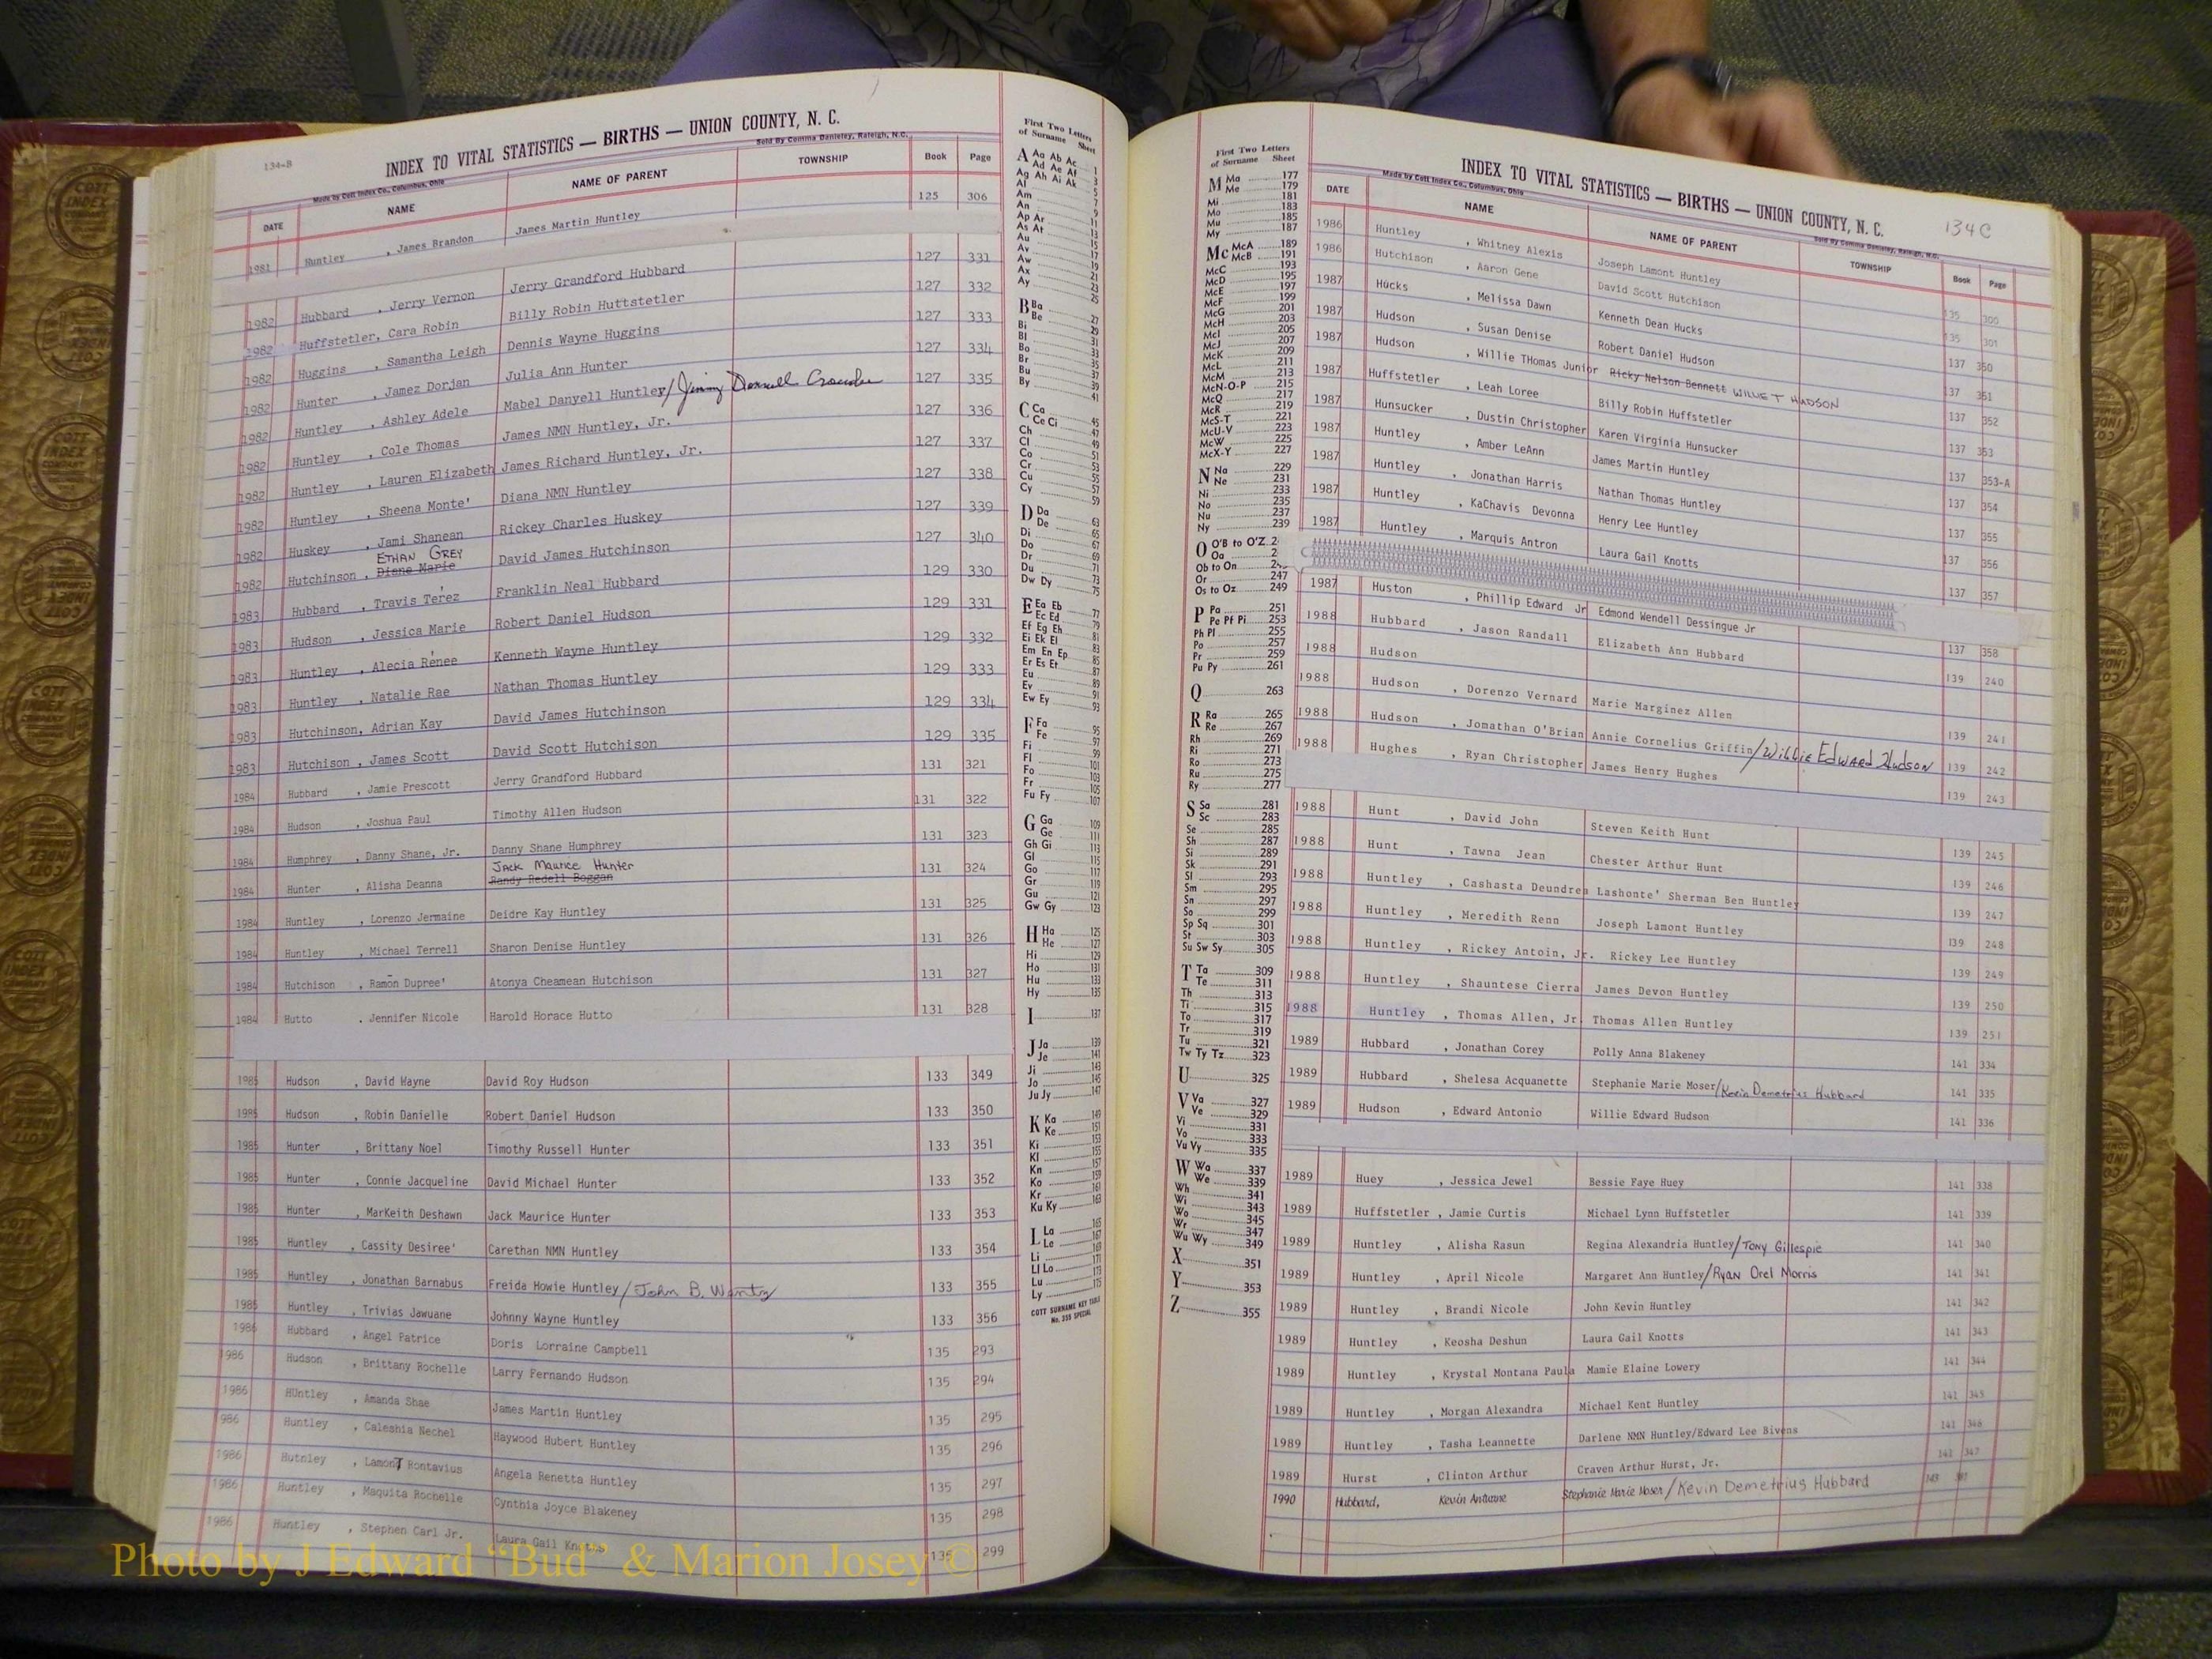 134-B
INDEX TO VITAL STATISTICS — BIRTHS — UNION COUNTY, N. C.
Made by Cott Index Co., Columbus, Ohio
Sold By Comma Danieley, Raleigh, N.C.
DATE NAME NAME OF PARENT TOWNSHIP Book Page
1981 Huntley , James Brandon James Martin Huntley 125 306
1982 Hubbard , Jerry Vernon Jerry Grandford Hubbard 127 331
1982 Huffstetler, Cara Robin Billy Robin Huttstetler 127 332
1982 Huggins , Samantha Leigh Dennis Wayne Huggins 127 333
1982 Hunter , Jamez Dorjan Julia Ann Hunter 127 334
1982 Huntley , Ashley Adele Mabel Danyell Huntley/Jimmy Darnell Crowder 127 335
1982 Huntley , Cole Thomas James NMN Huntley, Jr. 127 336
1982 Huntley , Lauren Elizabeth James Richard Huntley, Jr. 127 337
1982 Huntley , Sheena Monte' Diana NMN Huntley 127 338
1982 Huskey , Jami Shanean Rickey Charles Huskey 127 339
ETHAN GREY
1982 Hutchinson , Diane Marie David James Hutchinson 127 340
1983 Hubbard , Travis Te'rez Franklin Neal Hubbard 129 330
1983 Hudson , Jessica Marie Robert Daniel Hudson 129 331
1983 Huntley , Alecia Re'nee Kenneth Wayne Huntley 129 332
1983 Huntley , Natalie Rae Nathan Thomas Huntley 129 333
1983 Hutchinson, Adrian Kay David James Hutchinson 129 334
1983 Hutchison , James Scott David Scott Hutchison 129 335
1984 Hubbard , Jamie Prescott Jerry Grandford Hubbard 131 321
1984 Hudson , Joshua Paul Timothy Allen Hudson 131 322
1984 Humphrey , Danny Shane, Jr. Danny Shane Humphrey 131 323
Jack Maurice Hunter
1984 Hunter , Alisha Deanna Randy Redell Boggan 131 324
1984 Huntley , Lorenzo Jermaine Deidre Kay Huntley 131 325
1984 Huntley , Michael Terrell Sharon Denise Huntley 131 326
1984 Hutchison , Ramon Dupree' Atonya Cheamean Hutchison 131 327
1984 Hutto . Jennifer Nicole Harold Horace Hutto 131 328
1985 Hudson , David Wayne David Roy Hudson 133 349
1985 Hudson , Robin Danielle Robert Daniel Hudson 133 350
1985 Hunter , Brittany Noel Timothy Russell Hunter 133 351
1985 Hunter , Connie Jacqueline David Michael Hunter 133 352
1985 Hunter , MarKeith Deshawn Jack Maurice Hunter 133 353
1985 Huntley , Cassity Desiree' Carethan NMN Huntley 133 354
1985 Huntley , Jonathan Barnabus Freida Howie Huntley/John B. Wentz 133 355
1985 Huntley , Trivias Jawuane Johnny Wayne Huntley 133 356
1986 Hubbard , Angel Patrice Doris Lorraine Campbell 135 293
1986 Hudson , Brittany Rochelle Larry Fernando Hudson 135 294
1986 HUntley , Amanda Shae James Martin Huntley 135 295
986 Huntley , Caleshia Nechel Haywood Hubert Huntley 135 296
1986 Hutnley , LamonT Rontavius Angela Renetta Huntley 135 297
1986 Huntley , Maquita Rochelle Cynthia Joyce Blakeney 135 298
1986 Huntley , Stephen Carl Jr. Laura Gail Knotts 135 299
First Two Letters
of Surname Sheet
A Aa Ab Ac 1
Ad Ae Af 3
Ag Ah Ai Ak 5
Al 7
Am 9
An 11
Ap Ar 13
As At 15
Au 17
Av 19
Aw 21
Ax 23
Ay 25
B Ba 27
Be 29
Bi 31
Bl 33
Bo 35
Br 37
Bu 39
By 41
C Ca 45
Ce Ci 47
Ch 49
Cl 51
Co 53
Cr 55
Cu 57
Cy 59
D Da 63
De 65
Di 67
Do 69
Dr 71
Du 73
Dw Dy 75
E Ea Eb 77
Ec Ed 79
Ef Eg Eh 81
Ei Ek El 83
Em En Ep 85
Er Es Et 87
Eu 89
Ev 91
Ew Ey 93
F Fa 95
Fe 97
Fi 99
Fl 101
Fo 103
Fr 105
Fu Fy 107
G Ga 109
Ge 111
Gh Gi 113
Gl 115
Go 117
Gr 119
Gu 121
Gw Gy 123
H Ha 125
He 127
Hi 129
Ho 131
Hu 133
Hy 135
I 137
J Ja 139
Je 141
Ji 143
Jo 145
Ju Jy 147
K Ka 149
Ke 151
Ki 153
Kl 155
Kn 157
Ko 159
Kr 161
Ku Ky 163
L La 165
Le 167
Li 169
Ll Lo 171
Lu 173
Ly 175
COTT SURNAME KEY TABLE
No. 355 SPECIAL
First Two Letters
of Surname Sheet
M Ma 177
Me 179
Mi 181
Mo 183
Mu 185
My 187
Mc McA 189
McB 191
McC 193
McD 195
McE 197
McF 199
McG 201
McH 203
McI 205
McJ 207
McK 209
McL 211
McM 213
McN-O-P 215
McQ 217
McR 219
McS-T 221
McU-V 223
McW 225
McX-Y 227
N Na 229
Ne 231
Ni 233
No 235
Nu 237
Ny 239
O O'B to O'Z
Oa
Ob to On
Or 247
Os to Oz 249
P Pa 251
Pe Pf Pi 253
Ph Pl 255
Po 257
Pr 259
Pu Py 261
Q 263
R Ra 265
Re 267
Rh 269
Ri 271
Ro 273
Ru 275
Ry 277
S Sa 281
Sc 283
Se 285
Sh 287
Si 289
Sk 291
Sl 293
Sm 295
Sn 297
So 299
Sp Sq 301
St 303
Su Sw Sy 305
T Ta 309
Te 311
Th 313
Ti 315
To 317
Tr 319
Tu 321
Tw Ty Tz 323
U 325
V Va 327
Ve 329
Vi 331
Vo 333
Vu Vy 335
W Wa 337
We 339
Wh 341
Wi 343
Wo 345
Wr 347
Wu Wy 349
X 351
Y 353
Z 355
INDEX TO VITAL STATISTICS — BIRTHS — UNION COUNTY, N. C. 134C
Made by Cott Index Co., Columbus, Ohio
Sold By Comma Danieley, Raleigh, N.C.
DATE NAME NAME OF PARENT TOWNSHIP Book Page
1986 Huntley , Whitney Alexis Joseph Lamont Huntley 135 300
1986 Hutchison , Aaron Gene David Scott Hutchison 135 301
1987 Hucks , Melissa Dawn Kenneth Dean Hucks 137 350
1987 Hudson , Susan Denise Robert Daniel Hudson 137 351
1987 Hudson , Willie THomas Junior Ricky Nelson Bennett WILLIE T HUDSON 137 352
1987 Huffstetler , Leah Loree Billy Robin Huffstetler 137 353
1987 Hunsucker , Dustin Christopher Karen Virginia Hunsucker 137 353-A
1987 Huntley , Amber LeAnn James Martin Huntley 137 354
1987 Huntley , Jonathan Harris Nathan Thomas Huntley 137 355
1987 Huntley , KaChavis Devonna Henry Lee Huntley 137 356
1987 Huntley , Marquis Antron Laura Gail Knotts 137 357
1987 Huston , Phillip Edward Jr Edmond Wendell Dessingue Jr 137 358
1988 Hubbard , Jason Randall Elizabeth Ann Hubbard 139 240
1988 Hudson
1988 Hudson , Dorenzo Vernard Marie Marginez Allen 139 241
1988 Hudson , Jomathan O'Brian Annie Cornelius Griffin/Willie Edward Hudson 139 242
1988 Hughes , Ryan Christopher James Henry Hughes 139 243
1988 Hunt , David John Steven Keith Hunt 139 245
1988 Hunt , Tawna Jean Chester Arthur Hunt 139 246
1988 Huntley , Cashasta Deundrea Lashonte' Sherman Ben Huntley 139 247
1988 Huntley , Meredith Renn Joseph Lamont Huntley 139 248
1988 Huntley , Rickey Antoin, Jr. Rickey Lee Huntley 139 249
1988 Huntley , Shauntese Cierra James Devon Huntley 139 250
1988 Huntley , Thomas Allen, Jr. Thomas Allen Huntley 139 251
1989 Hubbard , Jonathan Corey Polly Anna Blakeney 141 334
1989 Hubbard , Shelesa Acquanette Stephanie Marie Moser/Kevin Demetrius Hubbard 141 335
1989 Hudson , Edward Antonio Willie Edward Hudson 141 336
1989 Huey , Jessica Jewel Bessie Faye Huey 141 338
1989 Huffstetler , Jamie Curtis Michael Lynn Huffstetler 141 339
1989 Huntley , Alisha Rasun Regina Alexandria Huntley/Tony Gillespie 141 340
1989 Huntley , April Nicole Margaret Ann Huntley/Ryan Orel Morris 141 341
1989 Huntley , Brandi Nicole John Kevin Huntley 141 342
1989 Huntley , Keosha Deshun Laura Gail Knotts 141 343
1989 Huntley , Krystal Montana Paula Mamie Elaine Lowery 141 344
1989 Huntley , Morgan Alexandra Michael Kent Huntley 141 345
1989 Huntley , Tasha Leannette Darlene NMN Huntley/Edward Lee Bivens 141 346
1989 Hurst , Clinton Arthur Craven Arthur Hurst, Jr. 141 347
1990 Hubbard, Kevin Antuane Stephanie Marie Moser/Kevin Demetrius Hubbard 143
Photo by J Edward “Bud” & Marion Josey ©